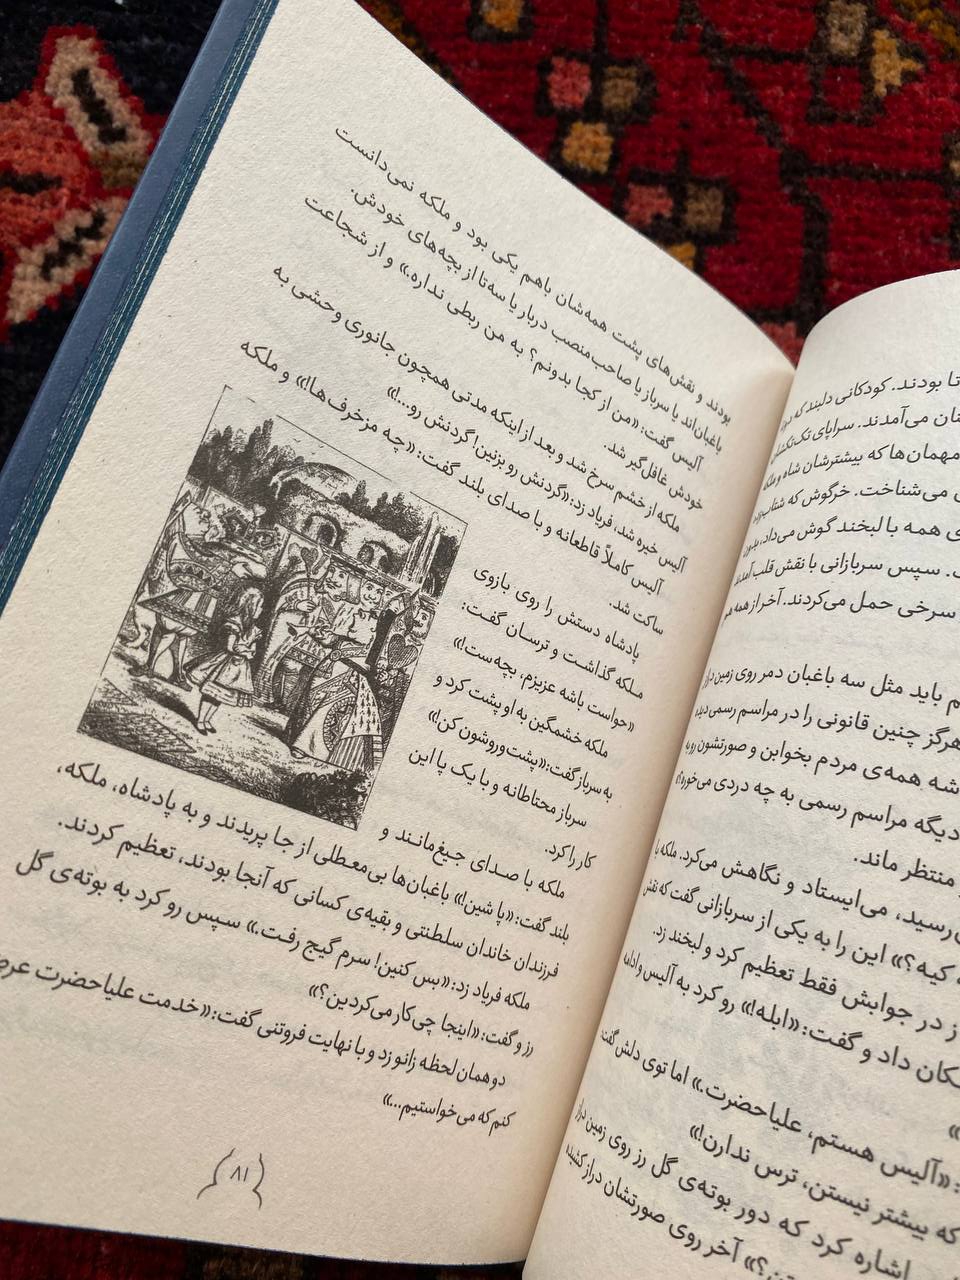 تا بودند. کودکانی دلبند که
می‌آمدند. سراپای تک‌تکشان
مهمان‌ها که بیشترشان شاه و ملکه
می‌شناخت. خرگوش که
همه با لبخند گوش می‌داد، بدون
سپس سربازانی با نقش قلب آمدند
سرخی حمل می‌کردند. آخر از همه هم
باید مثل سه باغبان دمر روی زمین دراز
هرگز چنین قانونی را در مراسم رسمی دیده
همه‌ی مردم بخوابن و صورتشون رو به
دیگه مراسم رسمی به چه دردی می‌خوره؟
منتظر ماند.
می‌ایستاد و نگاهش می‌کرد. ملکه با
کیه؟» این را به یکی از سربازانی گفت که نقش
در جوابش فقط تعظیم کرد و لبخند زد.
داد و گفت: «ابله!» رو کرد به آلیس و ادامه
«آلیس هستم، علیاحضرت.» اما توی دلش گفت:
که بیشتر نیستن، ترس ندارن!»
اشاره کرد که دور بوته‌ی گل رز روی زمین دراز
آخر روی صورتشان دراز کشیده
بودند و نقش‌های پشت همه‌شان باهم یکی بود و ملکه نمی‌دانست
باغبان‌اند یا سرباز یا صاحب‌منصب دربار یا سه‌تا از بچه‌های خودش.
آلیس گفت: «من از کجا بدونم؟ به من ربطی نداره.» و از شجاعت
خودش غافل‌گیر شد.
ملکه از خشم سرخ شد و بعد از اینکه مدتی همچون جانوری وحشی به
آلیس خیره شد، فریاد زد: «گردنش رو بزنین! گردنش رو...!»
آلیس کاملاً قاطعانه و با صدای بلند گفت: «چه مزخرف‌ها!» و ملکه
ساکت شد.
پادشاه دستش را روی بازوی
ملکه گذاشت و ترسان گفت:
«حواست باشه عزیزم، بچه‌ست!»
ملکه خشمگین به او پشت کرد و
به سرباز گفت: «پشت‌وروشون کن!»
سرباز محتاطانه و با یک پا این
کار را کرد.
ملکه با صدای جیغ‌مانند و
بلند گفت: «پا شین!» باغبان‌ها بی‌معطلی از جا پریدند و به پادشاه، ملکه،
فرزندان خاندان سلطنتی و بقیه‌ی کسانی که آنجا بودند، تعظیم کردند.
ملکه فریاد زد: «بس کنین! سرم گیج رفت.» سپس رو کرد به بوته‌ی گل
رز و گفت: «اینجا چی‌کار می‌کردین؟»
دو همان لحظه زانو زد و با نهایت فروتنی گفت: «خدمت علیاحضرت عرض
کنم که می‌خواستیم...»
۸۱